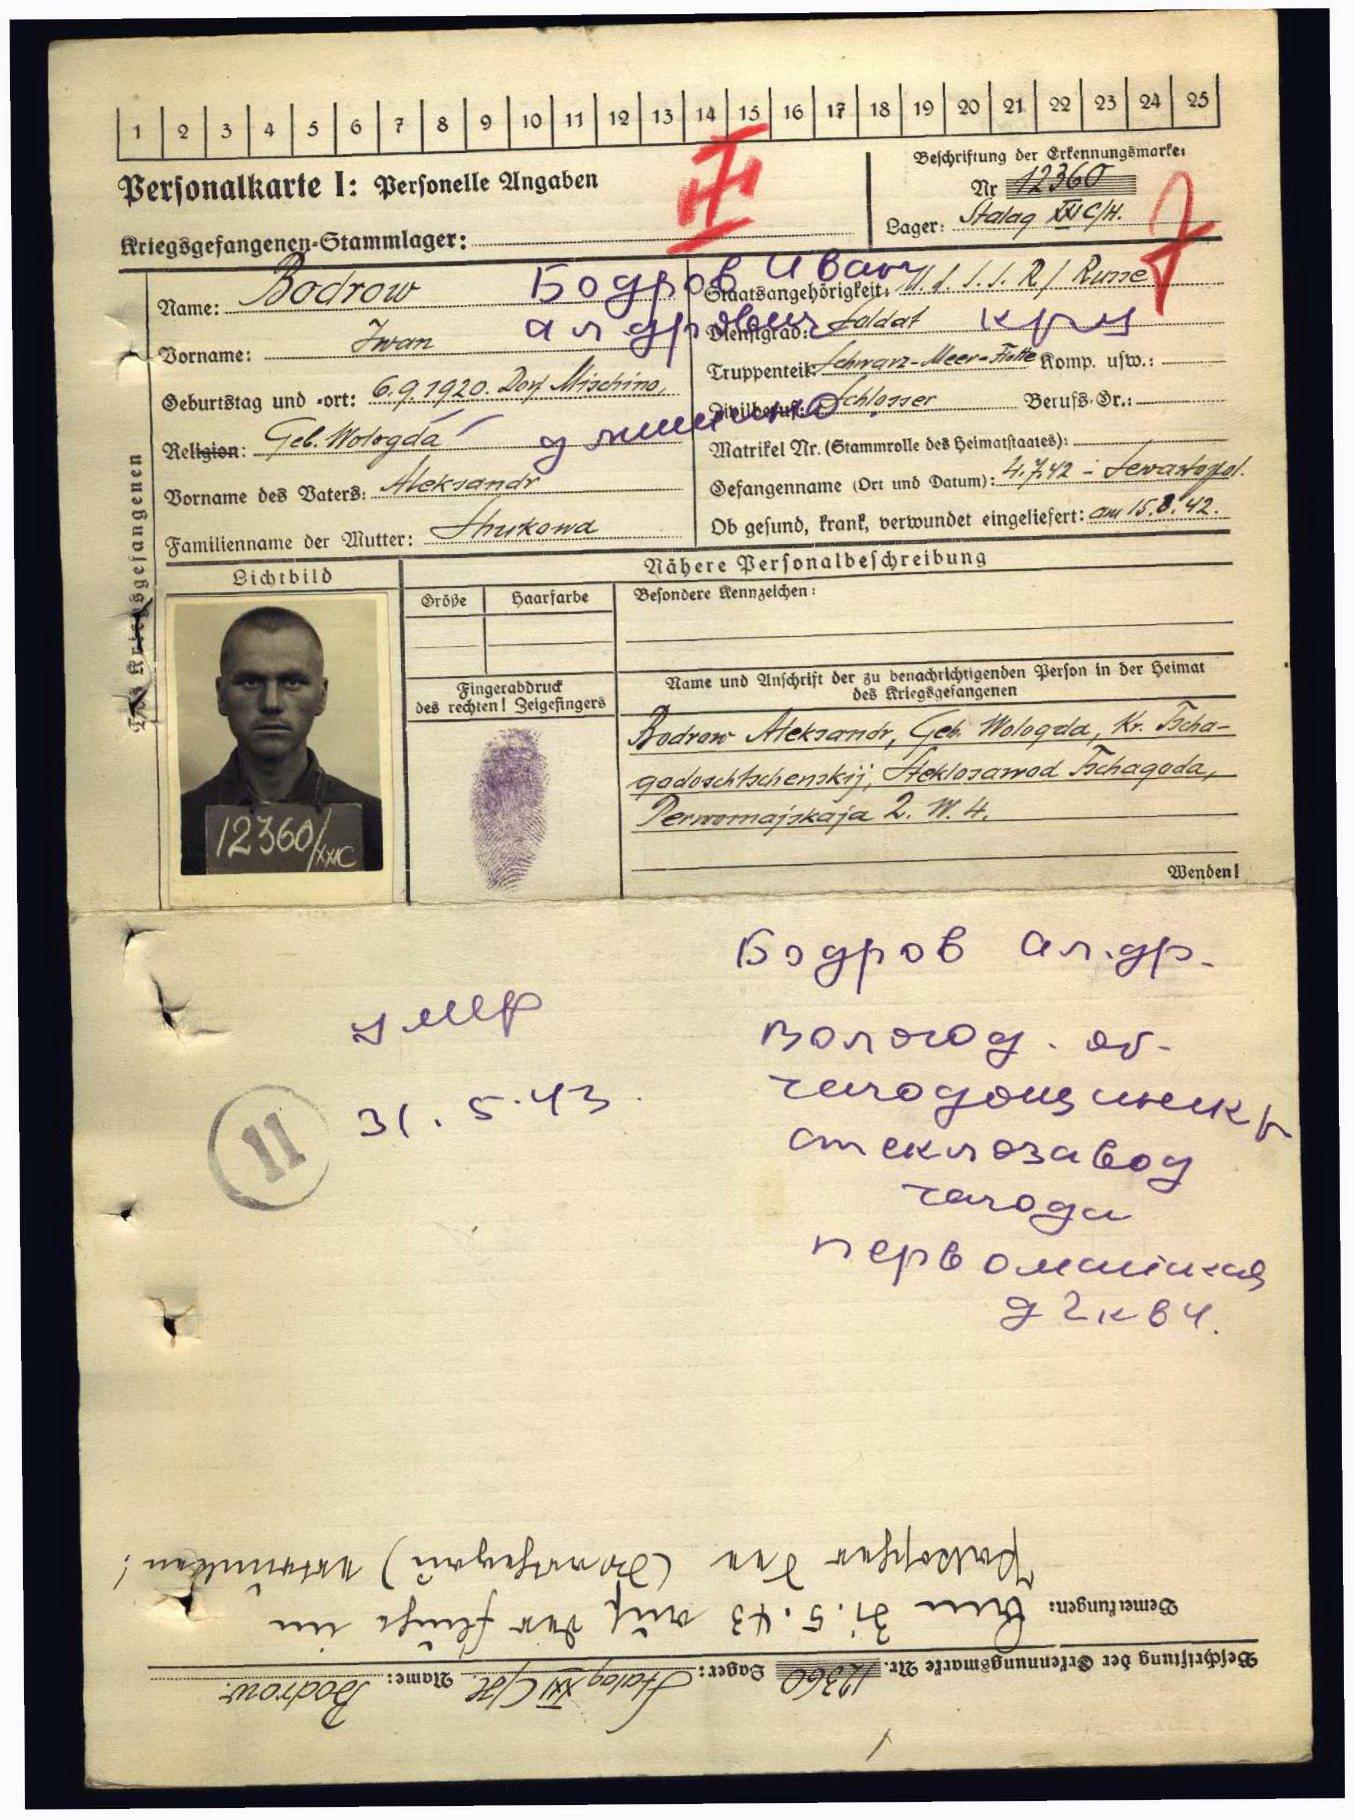 1 2 3 4 5 6 7 8 9 10 11 12 13 14 15 16 17 18 19 20 21 22 23 24 25
Personalkarte I: Personelle Angaben
III
Beschriftung der Erkennungsmarke:
Nr 12360
Lager: Stalag XXI C/H.
Kriegsgefangenen-Stammlager:
Des Kriegsgefangenen
Name: Bodrow
Бодров Иван
Vorname: Iwan
ал дрович
Geburtstag und -ort: 6.9.1920. Dorf Mischino,
Religion: Geb. Wologda
д мишино
Vorname des Vaters: Aleksandr
Familienname der Mutter: Shukowa
Staatsangehörigkeit: U.d.S.S.R./ Russe
Dienstgrad: Soldat
кр ц
Truppenteil: Schwarz-Meer-Flotte Komp. usw.:
Zivilberuf: Schlosser Berufs-Gr.:
Matrikel Nr. (Stammrolle des Heimatstaates):
Gefangennahme (Ort und Datum): 4.7.42 - Sewastopol.
Ob gesund, krank, verwundet eingeliefert: am 15.8.42.
Lichtbild
12360/XXIC
Nähere Personalbeschreibung
Größe Haarfarbe
Besondere Kennzeichen:
Fingerabdruck
des rechten! Zeigefingers
Name und Anschrift der zu benachrichtigenden Person in der Heimat
des Kriegsgefangenen
Bodrow Aleksandr, Geb. Wologda, Kr. Tscha-
godoschtschenskij, Steklosawod Tschagoda,
Perwomajskaja 2. W. 4.
Wenden!
Бодров ал.др.
умер
31.5.43.
11
Вологод. об-
чагодощинский
стеклозавод
чагода
первомайская
д 2 кв 4.
Beschriftung der Erkennungsmarke Nr. 12360 Lager: Stalag XXI C/H Name: Bodrow.
Bemerkungen: Am 31.5.43 auf der Flucht im
der (Warthegau) ertrunken!